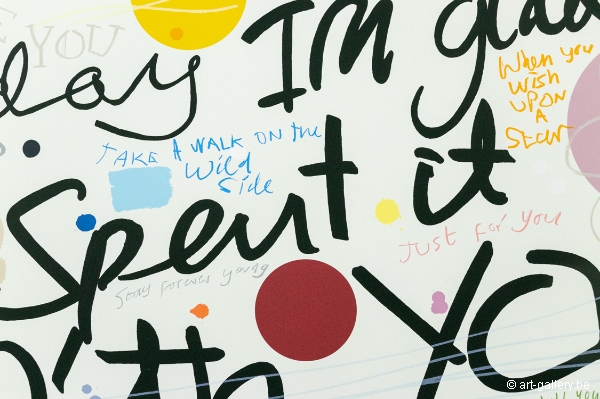 YOU
day I'M glad
When you
wish
UPON
A
Star
TAKE A WALK ON the
Wild
Side
Spent it
Just for you
Stay forever young
with YO
© art-gallery.be